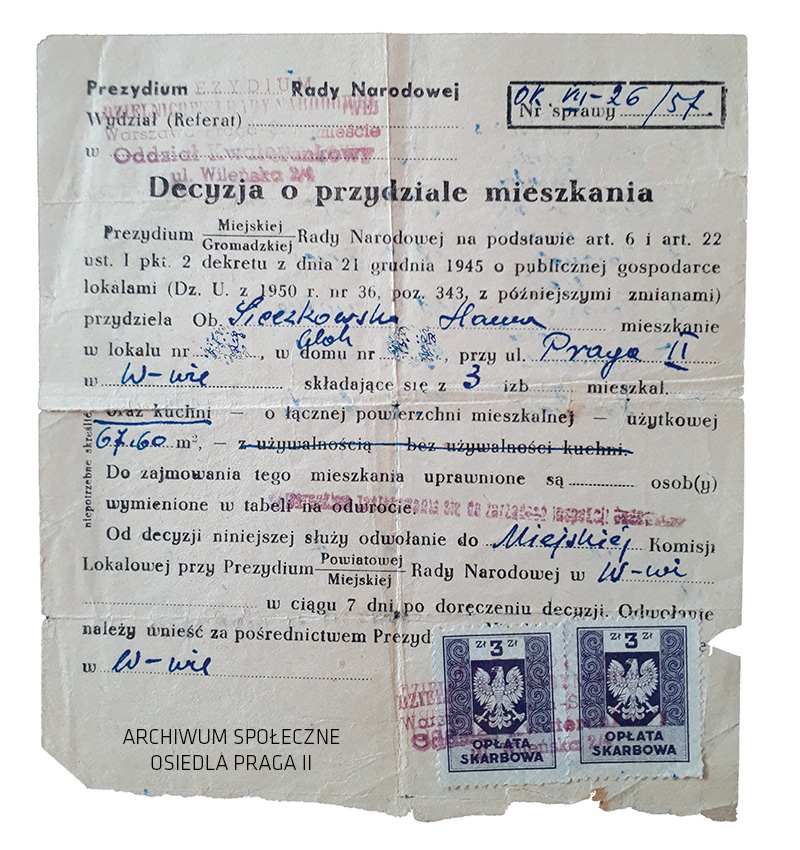 Prezydium Rady Narodowej
PREZYDIUM
DZIELNICOWEJ RADY NARODOWEJ
Wydział (Referat)
Warszawa-Praga
w
Oddział Kwaterunkowy
ul. Wileńska 2/4
OK. VII-26/57.
Nr sprawy
Decyzja o przydziale mieszkania
Prezydium Miejskiej
Gromadzkiej Rady Narodowej na podstawie art. 6 i art. 22
ust. 1 pkt. 2 dekretu z dnia 21 grudnia 1945 o publicznej gospodarce
lokalami (Dz. U. z 1950 r. nr 36, poz. 343, z późniejszymi zmianami)
przydziela Ob. Sieczkowska Hanna mieszkanie
w lokalu nr , w domu nr , przy ul. Praga II
blok
w W-wie składające się z 3 izb mieszkal.
oraz kuchni — o łącznej powierzchni mieszkalnej — użytkowej
67,60 m², — z używalnością — bez używalności kuchni.
niepotrzebne skreślić
Do zajmowania tego mieszkania uprawnione są osob(y)
wymienione w tabeli na odwrocie.
Od decyzji niniejszej służy odwołanie do Miejskiej Komisji
Lokalowej przy Prezydium Powiatowej
Miejskiej Rady Narodowej w W-wi
w ciągu 7 dni po doręczeniu decyzji. Odwołanie
należy wnieść za pośrednictwem Prezyd
w W-wie
ZŁ 3 ZŁ
OPŁATA
SKARBOWA
ZŁ 3 ZŁ
OPŁATA
SKARBOWA
ARCHIWUM SPOŁECZNE
OSIEDLA PRAGA II